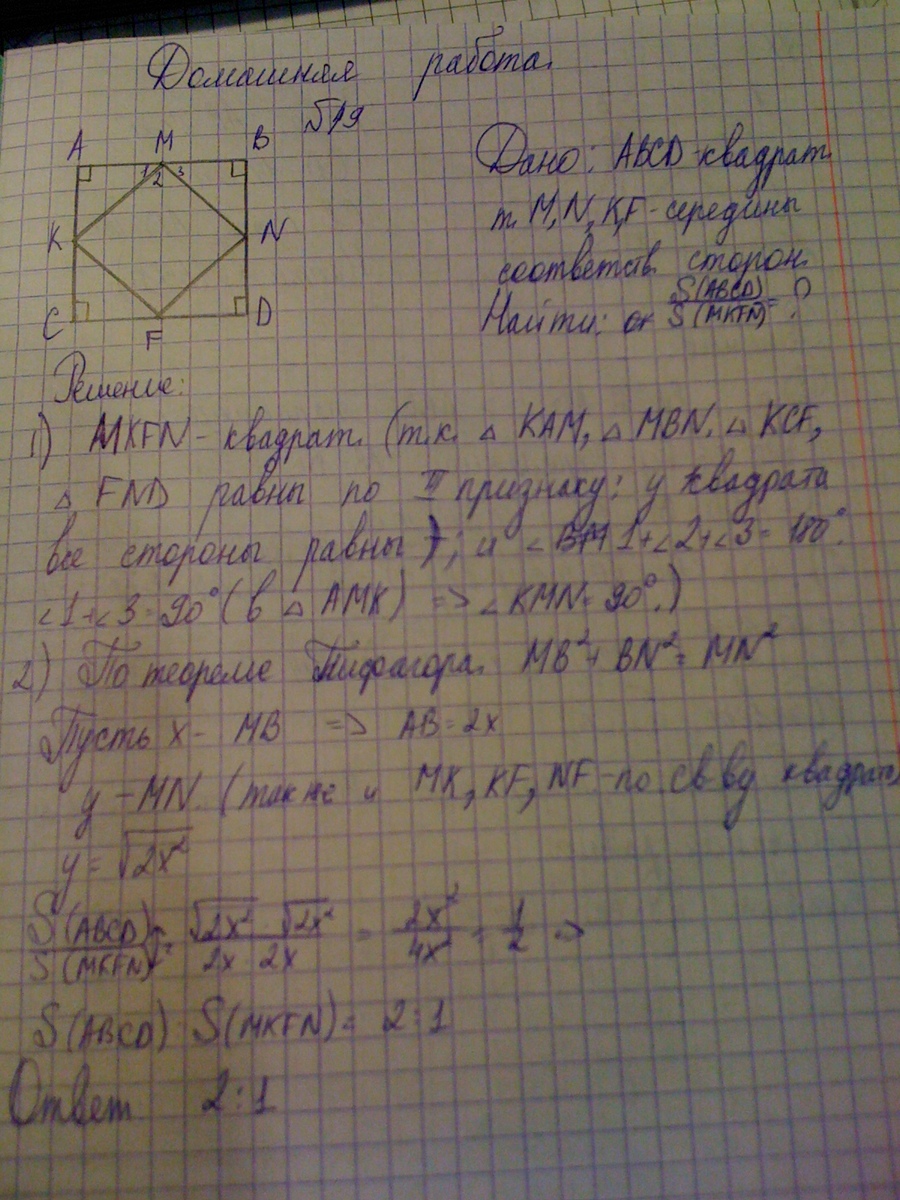 Домашная работа.
№19
A M B
1 2 3
K N
C F D
Дано: ABCD-квадрат
т. M, N, K, F - середины
соответств. сторон.
Найти: S(ABCD)/S(MKFN) = ?
Решение:
1) MKFN - квадрат. (т.к. △ KAM, △ MBN. △ KCF,
△ FND равны по III признаку: у квадрата
все стороны равны); и ∠1+∠2+∠3=180°.
∠1+∠3=90° (в △ AMK) => ∠KMN=90°.)
2) По теореме Пифагора. MB²+BN²=MN²
Пусть x - MB => AB=2x
y - MN. (так же и MK, KF, NF - по св-ву квадрата
y = √2x²
S(ABCD)/S(MKFN) = √2x² · √2x²/2x · 2x = 2x²/4x² = 1/2 =>
S(ABCD) S(MKFN) = 2:1
Ответ 2:1